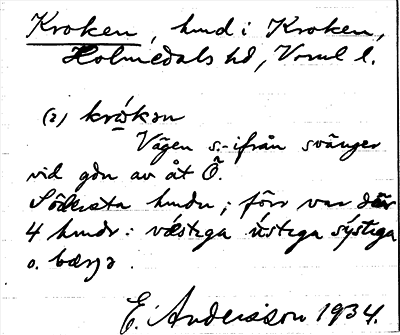 Kroken, hmd i Kroken,
Holmedals hd, Vrml l.
(a) krókən
Vägen s.-ifrån svänger
vid gdn av åt Ö.
Södersta hmdn; förr var där
4 hmdr: västiga östiga systiga
o. bærjə.
E. Andersson 1934.